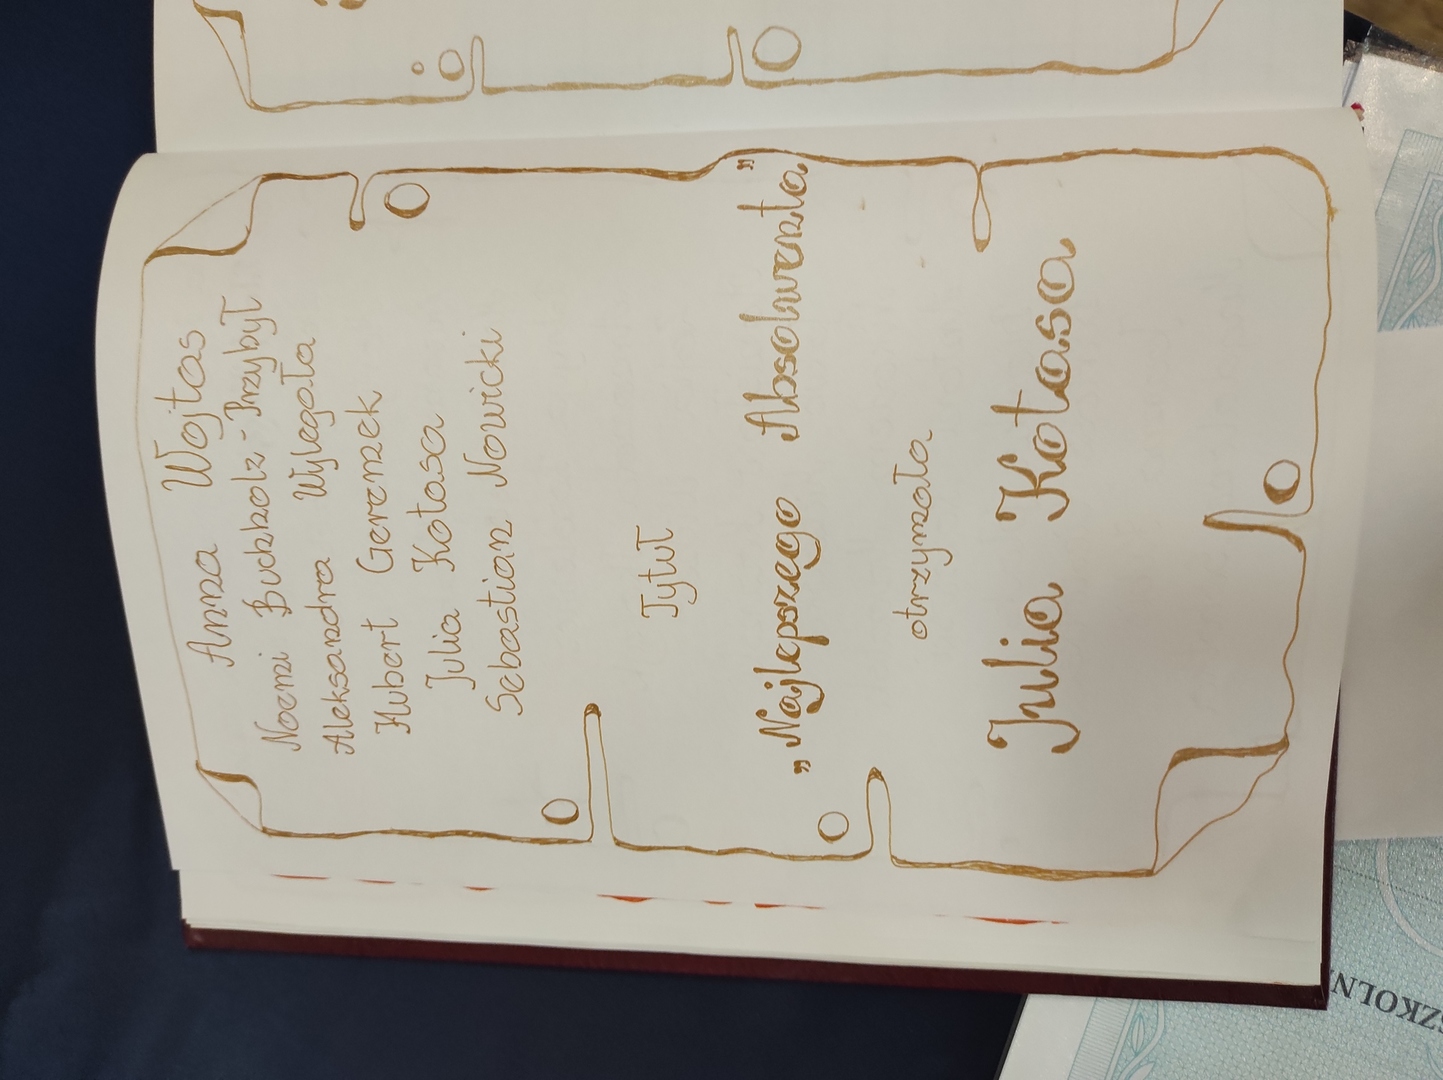 Anna Wojtas
Noemi Buchholz-Przybył
Aleksandra Wylegała
Hubert Geremek
Julia Kotasa
Sebastian Nowicki
Tytuł
„Najlepszego Absolwenta”
otrzymała
Julia Kotasa